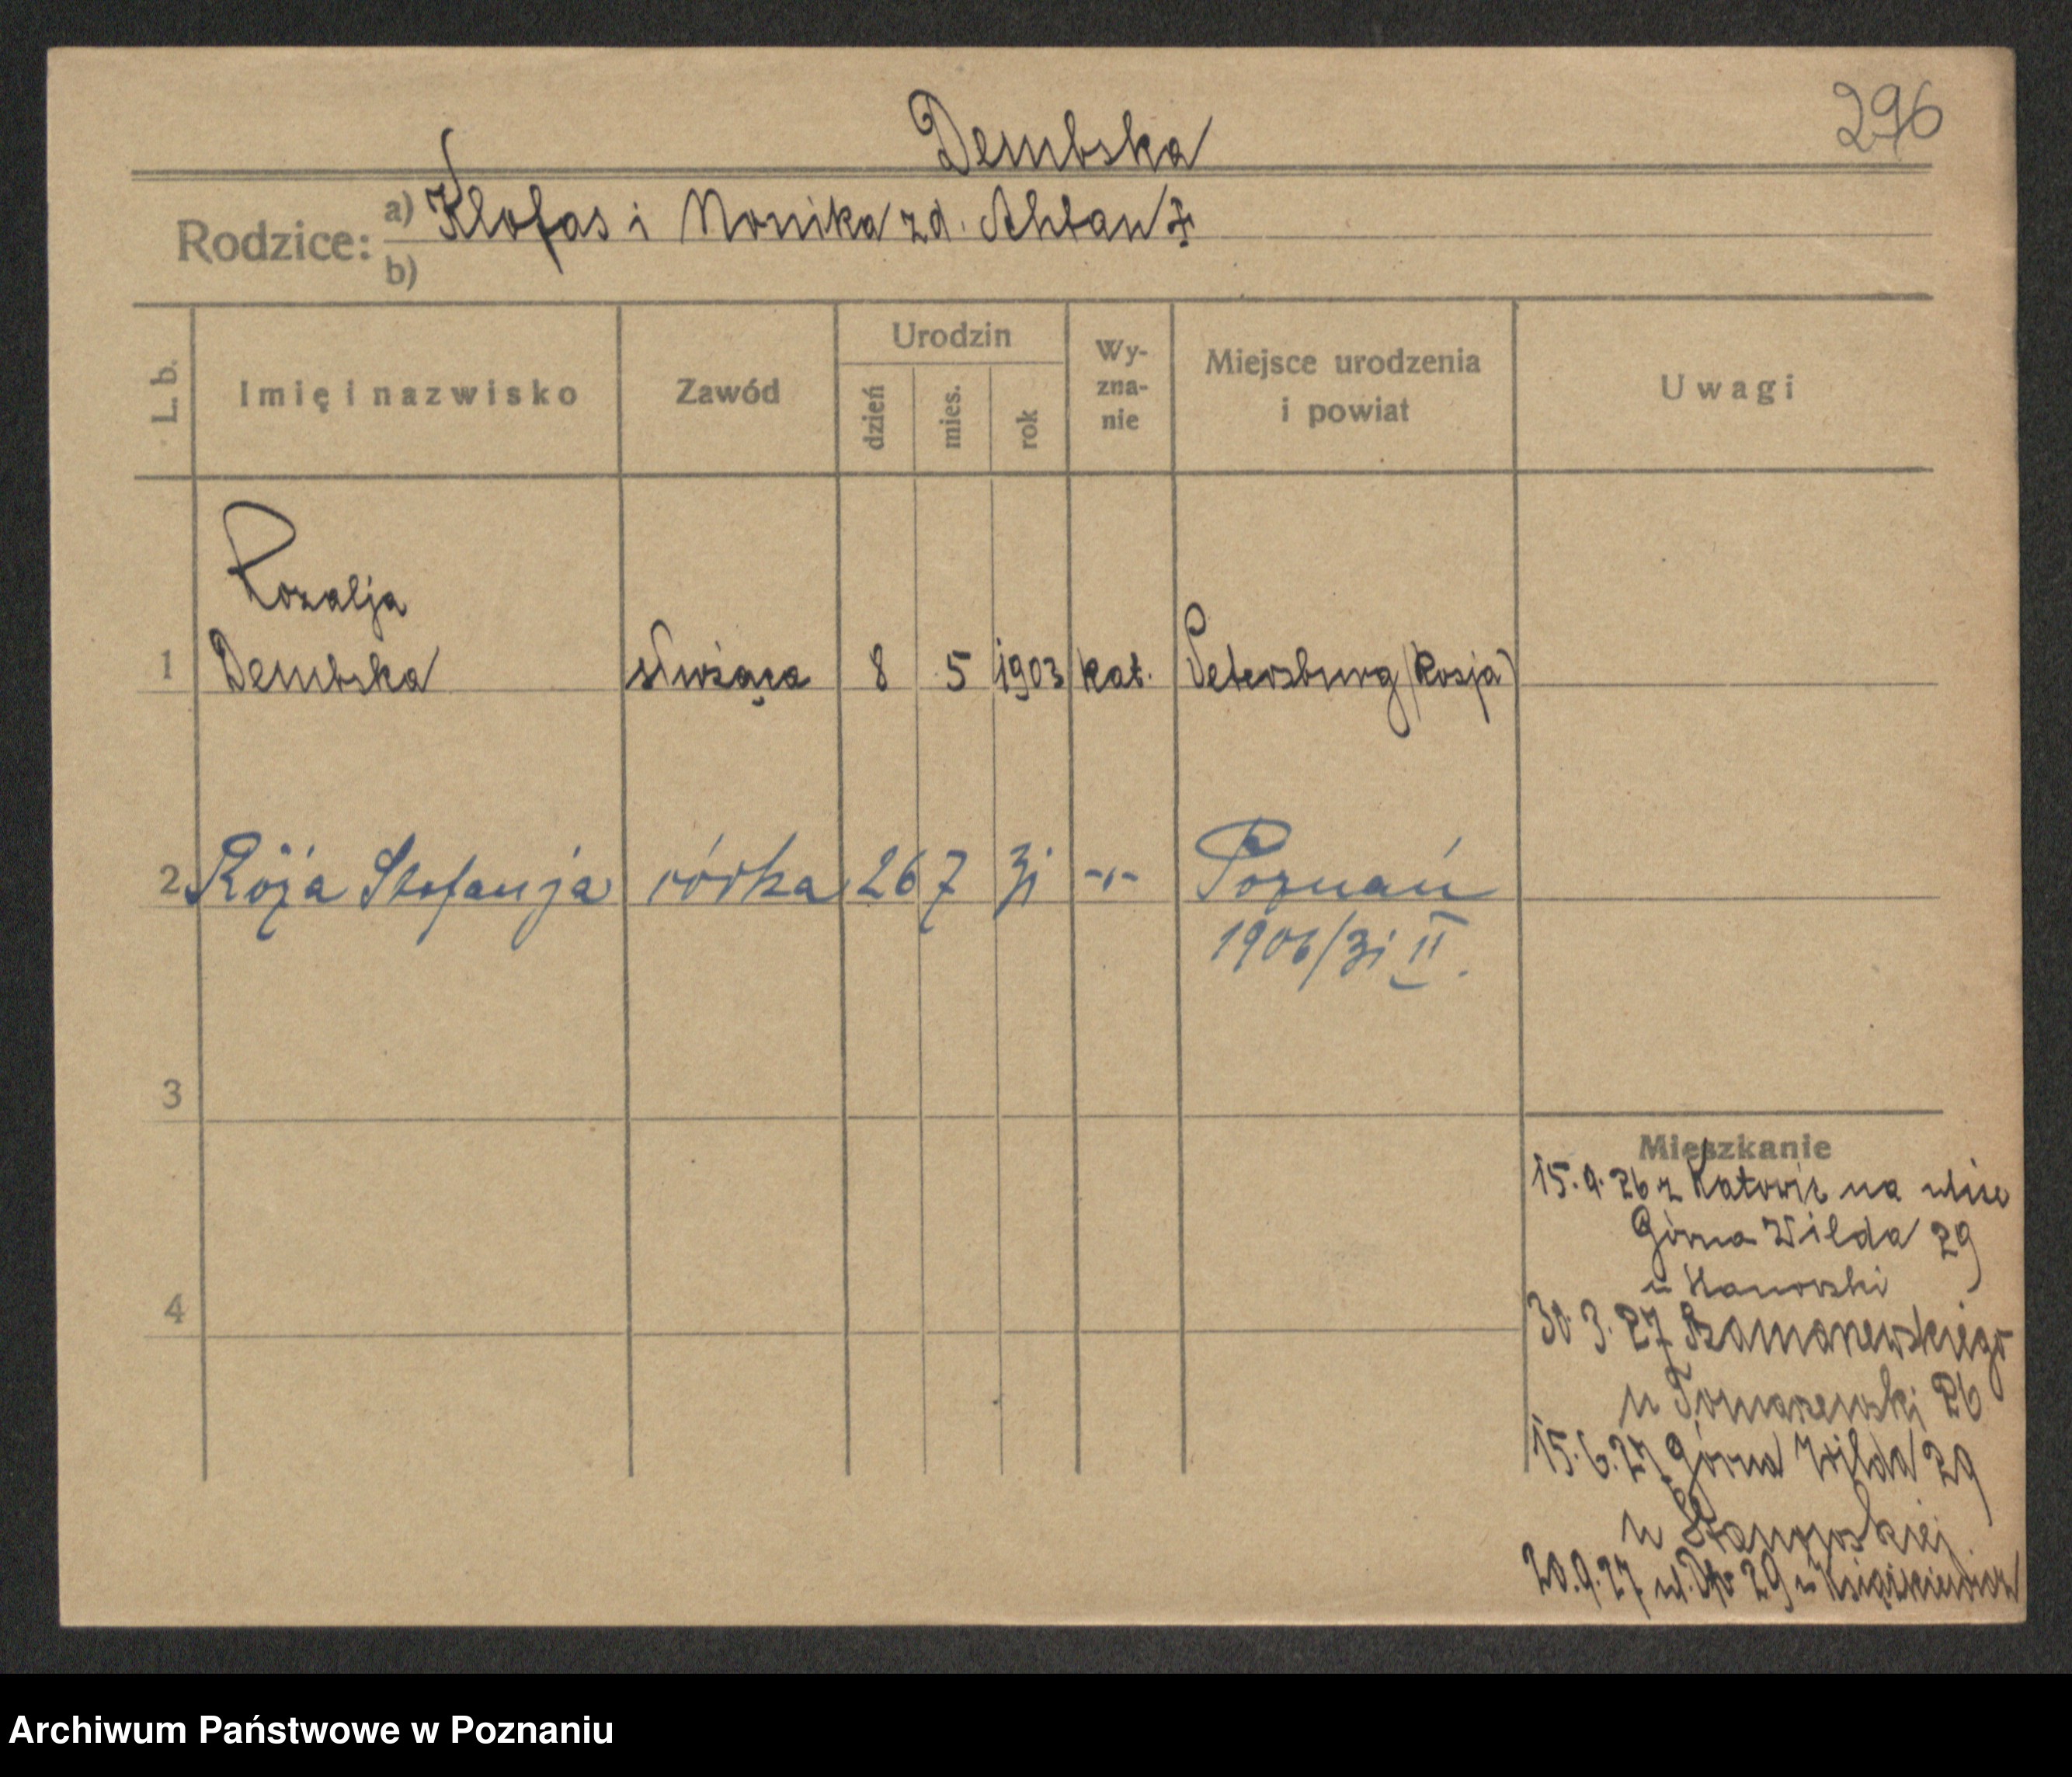 296
Dembska
Rodzice: a) Klofas i Monika zd.
b)
L. b.
Imię i nazwisko
Zawód
Urodzin
dzień
mies.
rok
Wy-
zna-
nie
Miejsce urodzenia
i powiat
Uwagi
Rozalja
1 Dembska służąca 8 5 1903 kat. Petersburg (Rosja)
2 Róża Stefanja córka 26 7 31 -"- Poznań
1906/31 II.
3
4
Mieszkanie
15.9.26 z Katowic na ulice
Górna Wilda 29
u
30.3.27
u Tomaszewski 26
15.6.27 Górna Wilda 29
u
20.9.27 29 u
Archiwum Państwowe w Poznaniu